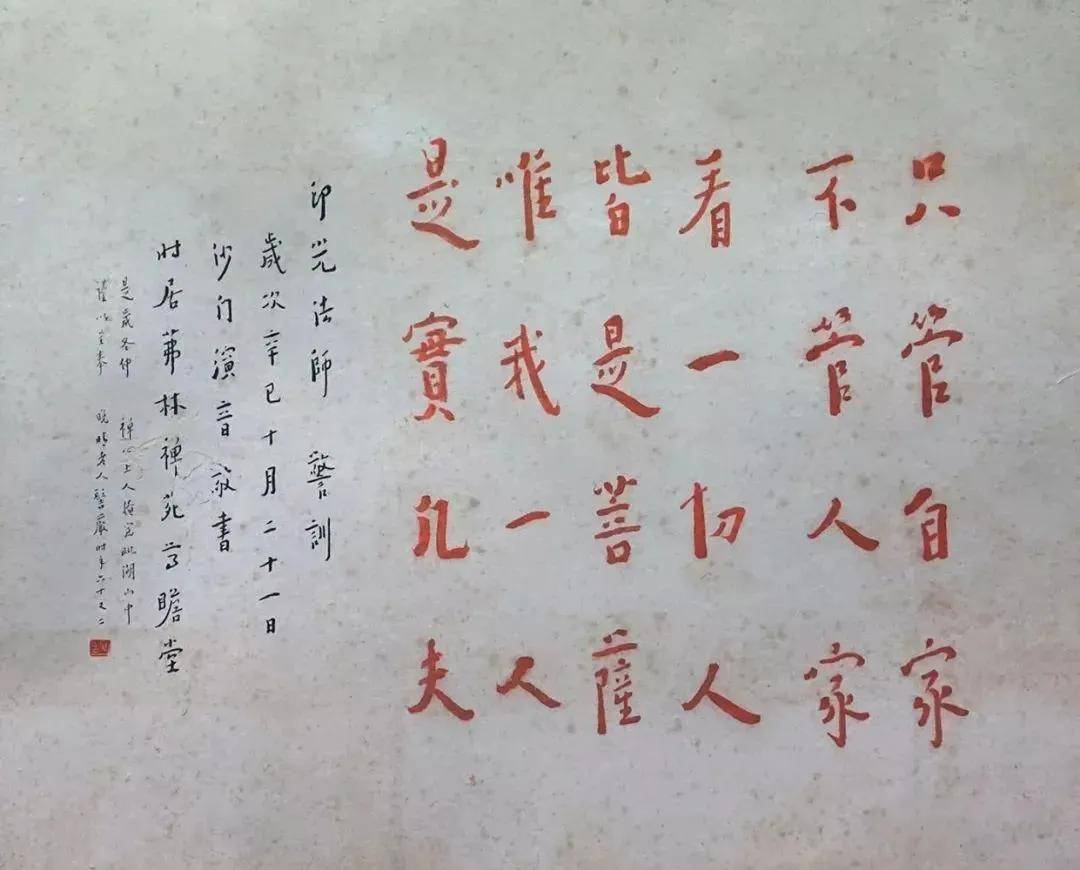 只管自家
不管人家
看一切人
皆是菩薩
唯我一人
是實凡夫
印光法師 警訓
歲次辛巳十月二十一日
沙门演音敬書
时居茀林禅苑瞻堂
是歲冬仲 禅心上人掩室湖山中
謹以呈奉 晚晴老人嚴时年六十又二